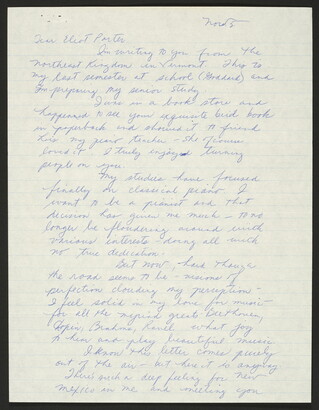 Nov 5
Dear Eliot Porter
I'm writing to you from the
Northeast Kingdom in Vermont. This is
my last semester at school (Goddard) and
I'm preparing my senior study.
I was in a book store and
happened to see your exquisite bird book
in paperback and showed it to friend
my piano teacher - She of course
loved it. I truly enjoyed turning
people on you.
My studies have focused
finally on classical piano. I
want to be a pianist and that
decision has given me much - to no
longer be floundering around with
various interests - doing all with
no true dedication.
But now, hard though
the road seems to be - visions of
perfection clouding my perception -
I feel solid in my love for music -
for all the magical greats Beethoven,
Chopin, Brahms, Ravel what joy
to hear and play beautiful music
I know this letter comes purely
out of the air - but here it is anyway
There's such a deep feeling for New
Mexico in me and meeting you